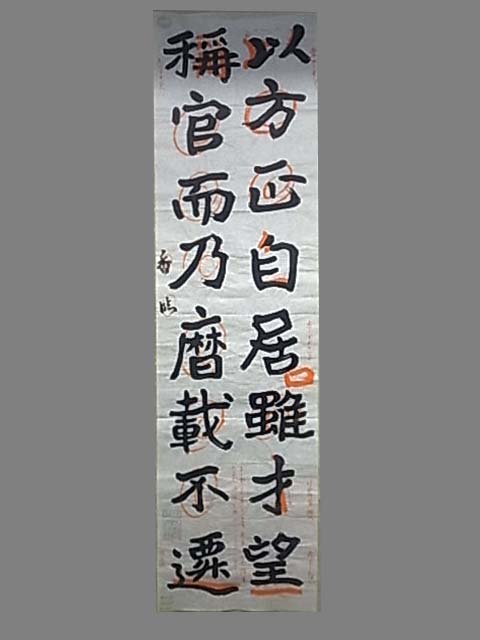 以方正自居雖才望
稱官而乃曆載不遷